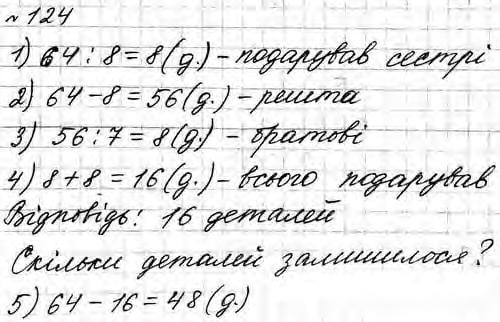 № 124
1) 64 : 8 = 8 (д.) – подарував сестрі
2) 64 – 8 = 56 (д.) – решта
3) 56 : 7 = 8 (д.) – братові
4) 8 + 8 = 16 (д.) – всього подарував
Відповідь: 16 деталей
Скільки деталей залишилося?
5) 64 – 16 = 48 (д.)